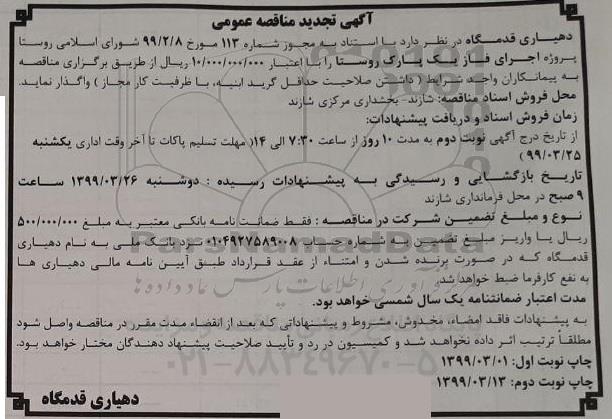 آگهی تجدید مناقصه عمومی
دهیاری قدمگاه در نظر دارد با استناد به مجوز شماره ۱۱۳ مورخ ۹۹/۲/۸ شورای اسلامی روستا
پروژه اجرای فاز یک پارک روستا را با اعتبار ۱۰/۰۰۰/۰۰۰/۰۰۰ ریال از طریق برگزاری مناقصه
به پیمانکاران واجد شرایط ( داشتن صلاحیت حداقل گرید ابنیه، با ظرفیت کار مجاز ) واگذار نماید.
محل فروش اسناد مناقصه: شازند- بخشداری مرکزی شازند
زمان فروش اسناد و دریافت پیشنهادات:
از تاریخ درج آگهی نوبت دوم به مدت ۱۰ روز از ساعت ۷:۳۰ الی ۱۴( مهلت تسلیم پاکات تا آخر وقت اداری یکشنبه
۹۹/۰۳/۲۵ )
تاریخ بازگشایی و رسیدگی به پیشنهادات رسیده : دوشنبه ۱۳۹۹/۰۳/۲۶ ساعت
۹ صبح در محل فرمانداری شازند
نوع و مبلغ تضمین شرکت در مناقصه : فقط ضمانت نامه بانکی معتبر به مبلغ ۵۰۰/۰۰۰/۰۰۰
ریال یا واریز مبلغ تضمین به شماره حساب ۰۱۰۴۹۲۷۵۸۹۰۰۸ نزد بانک ملی به نام دهیاری
قدمگاه که در صورت برنده شدن و امتناع از عقد قرارداد طبق آیین نامه مالی دهیاری ها
به نفع کارفرما ضبط خواهد شد.
مدت اعتبار ضمانتنامه یک سال شمسی خواهد بود.
به پیشنهادات فاقد امضاء، مخدوش، مشروط و پیشنهاداتی که بعد از انقضاء مدت مقرر در مناقصه واصل شود
مطلقاً ترتیب اثر داده نخواهد شد و کمیسیون در رد و تأیید صلاحیت پیشنهاد دهندگان مختار خواهد بود.
چاپ نوبت اول: ۱۳۹۹/۰۳/۰۱
چاپ نوبت دوم: ۱۳۹۹/۰۳/۱۳
دهیاری قدمگاه
ParsNamadData
۰۲۱-۸۸۳۴۹۶۷۰-۵